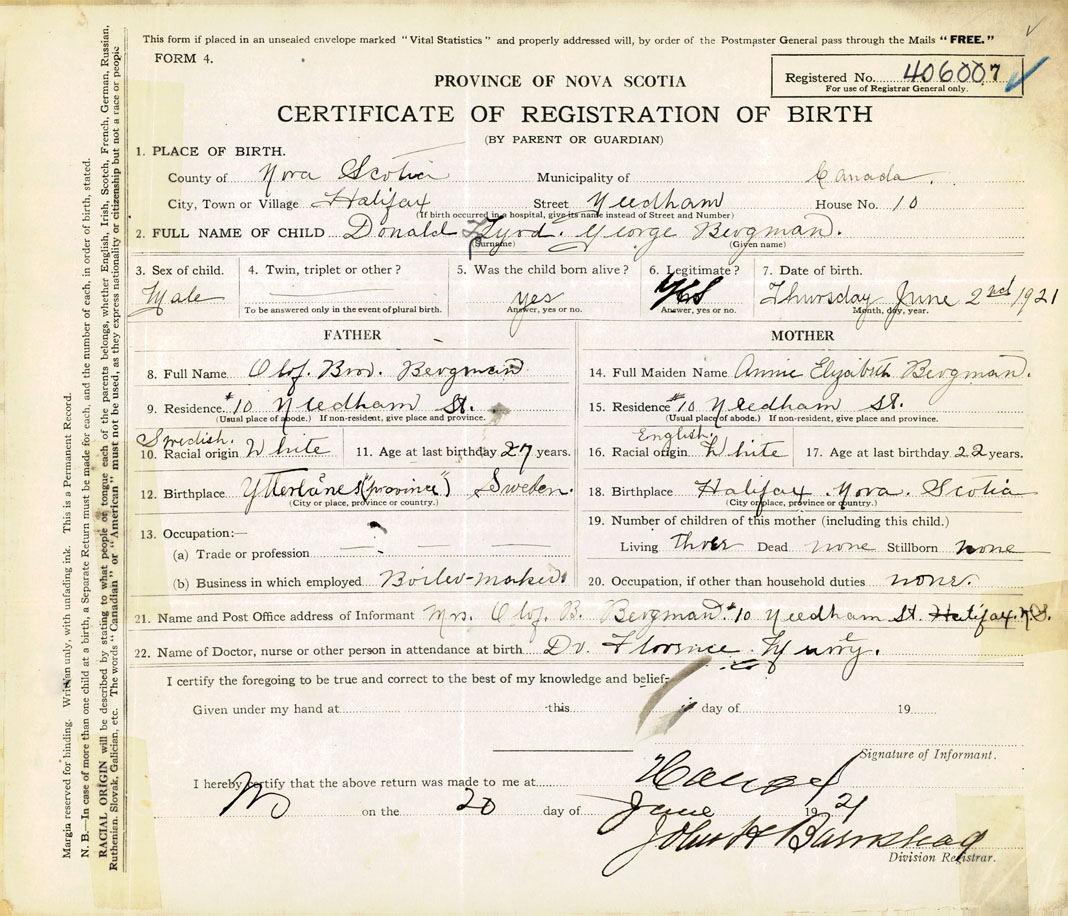 This form if placed in an unsealed envelope marked "Vital Statistics" and properly addressed will, by order of the Postmaster General pass through the Mails "FREE."
FORM 4.
Registered No. 406007
For use of Registrar General only.
PROVINCE OF NOVA SCOTIA
CERTIFICATE OF REGISTRATION OF BIRTH
(BY PARENT OR GUARDIAN)
1. PLACE OF BIRTH.
County of Nova Scotia Municipality of Canada.
City, Town or Village Halifax Street Needham House No. 10
(If birth occurred in a hospital, give its name instead of Street and Number)
2. FULL NAME OF CHILD Donald George Bergman.
(Surname) (Given name)
3. Sex of child. 4. Twin, triplet or other? 5. Was the child born alive? 6. Legitimate? 7. Date of birth.
Male yes Yes Thursday June 2nd 1921
To be answered only in the event of plural birth. Answer, yes or no. Answer, yes or no. Month, day, year.
FATHER
8. Full Name Olof. Bergman
9. Residence. #10 Needham St.
(Usual place of abode.) If non-resident, give place and province.
Swedish.
10. Racial origin White 11. Age at last birthday 27 years.
12. Birthplace ("province") Sweden.
(City or place, province or country.)
13. Occupation:—
(a) Trade or profession
(b) Business in which employed Boiler-maker.
MOTHER
14. Full Maiden Name Annie Elizabeth Bergman.
15. Residence #10 Needham St.
(Usual place of abode.) If non-resident, give place and province.
English.
16. Racial origin White 17. Age at last birthday 22 years.
18. Birthplace Halifax. Nova. Scotia
(City or place, province or country.)
19. Number of children of this mother (including this child.)
Living three Dead none Stillborn none
20. Occupation, if other than household duties none.
21. Name and Post Office address of Informant Mrs. Olof. B. Bergman. #10 Needham St. Halifax. N.S.
22. Name of Doctor, nurse or other person in attendance at birth Dr. Florence Murry.
I certify the foregoing to be true and correct to the best of my knowledge and belief.
Given under my hand at this day of 19
Signature of Informant.
I hereby certify that the above return was made to me at
on the 20 day of June 1921
John H Barnstead
Division Registrar.
Margin reserved for binding. Written only, with unfading ink. This is a Permanent Record.
N. B.—In case of more than one child at a birth, a Separate Return must be made for each, and the number of each, in order of birth, stated.
RACIAL ORIGIN will be described by stating to what people or tongue each of the parents belongs, whether English, Irish, Scotch, French, German, Russian,
Ruthenian, Slovak, Galician, etc. The words "Canadian" or "American" must not be used, as they express nationality or citizenship but not a race or people